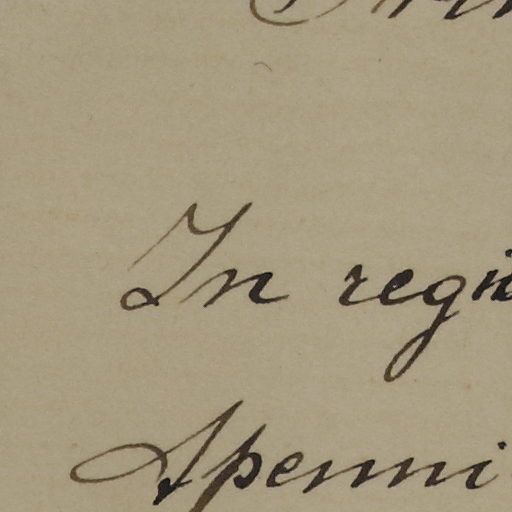 In regi
Apenni